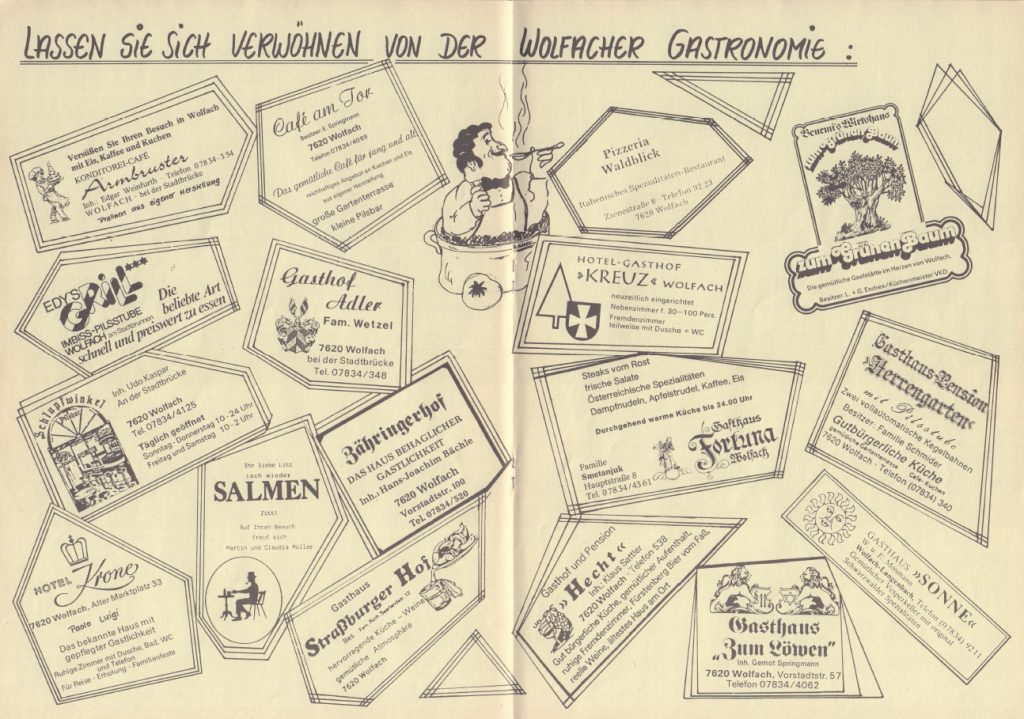 LASSEN SIE SICH VERWÖHNEN VON DER WOLFACHER GASTRONOMIE :
Versüßen Sie Ihren Besuch in Wolfach
mit Eis, Kaffee und Kuchen
KONDITOREI-CAFÉ
Armbruster
Inh. Edgar Weinfurth Telefon 07834-354
WOLFACH - bei der Stadtbrücke
Pralinen aus eigener Herstellung
Café am Tor
Besitzer: E. Springmann
7620 Wolfach
Telefon 07834/4065
Das gemütliche Café für jung und alt
reichhaltiges Angebot an Kuchen und Eis
aus eigener Herstellung
große Gartenterrasse
kleine Pilsbar
Pizzeria
Waldblick
Italienisches Spezialitäten-Restaurant
Zienestraße 8 · Telefon 92 23
7620 Wolfach
Benemi's Wirtshaus
zum Grünan Baum
zum Grünan Baum
Die gemütliche Gaststätte im Herzen von Wolfach.
Besitzer: L. + G. Endres/Küchenmeister VKD
EDY'S
GRILL***
IMBISS-PILSSTUBE
WOLFACH am Stadtbrunnen
Die
beliebte Art
schnell und preiswert zu essen
Gasthof
Adler
Fam. Wetzel
7620 Wolfach
bei der Stadtbrücke
Tel. 07834/348
HOTEL-GASTHOF
»KREUZ« WOLFACH
neuzeitlich eingerichtet
Nebenzimmer f. 30-100 Pers.
Fremdenzimmer
teilweise mit Dusche + WC
Schlupfwinkel
Pilsbar
Inh. Udo Kaspar
An der Stadtbrücke
7620 Wolfach
Tel. 07834/4125
Täglich geöffnet
Sonntag - Donnerstag 10 - 24 Uhr
Freitag und Samstag 10 - 2 Uhr
Ihr liebe Litt
isch winder
SALMEN
Zitt!
Auf Ihren Besuch
freut sich
Martin und Claudia Müller
Zähringerhof
DAS HAUS BEHAGLICHER
GASTLICHKEIT
Inh.: Hans-Joachim Bächle
7620 Wolfach
Vorstadtstr. 100
Tel. 07834/520
Steaks vom Rost
frische Salate
Österreichische Spezialitäten
Dampfnudeln, Apfelstrudel, Kaffee, Eis
Durchgehend warme Küche bis 24.00 Uhr
Gasthaus
Fortuna
Wolfach
Familie
Smetanjuk
Hauptstraße 8
Tel. 07834/4361
Gasthaus-Pension
"Herrengarten"
mit Pilsstube
Zwei vollautomatische Kegelbahnen
Besitzer: Familie Schmider
Gutbürgerliche Küche
gemütliche Gartenterrasse · Cafe - Kuchen
7620 Wolfach · Telefon (07834) 340
HOTEL Krone
7620 Wolfach, Alter Marktplatz 33
Paolo Luigi
Das bekannte Haus mit
gepflegter Gastlichkeit
Ruhige Zimmer mit Dusche, Bad, WC
und Telefon
Für Reise - Erholung - Familienfeste
Gasthaus
Straßburger Hof
hervorragende Küche - Weine
gemütliche Atmosphäre
7620 Wolfach
Gasthof und Pension
»Hecht«
Inh.: Klaus Sattler
7620 Wolfach · Telefon 538
Gut bürgerliche Küche, gemütlicher Aufenthalt,
ruhige Fremdenzimmer, Fürstenberg Bier vom Faß,
reelle Weine, ältestes Haus am Ort
Gasthaus
„Zum Löwen"
Inh. Gernot Springmann
7620 Wolfach, Vorstadtstr. 57
Telefon 07834/4062
GASTHAUS »SONNE«
W. u. E.
Wolfach-Langenbach, Telefon (07834) 9211
Gemütlicher Vesperkeller mit original
Schwarzwälder Spezialitäten